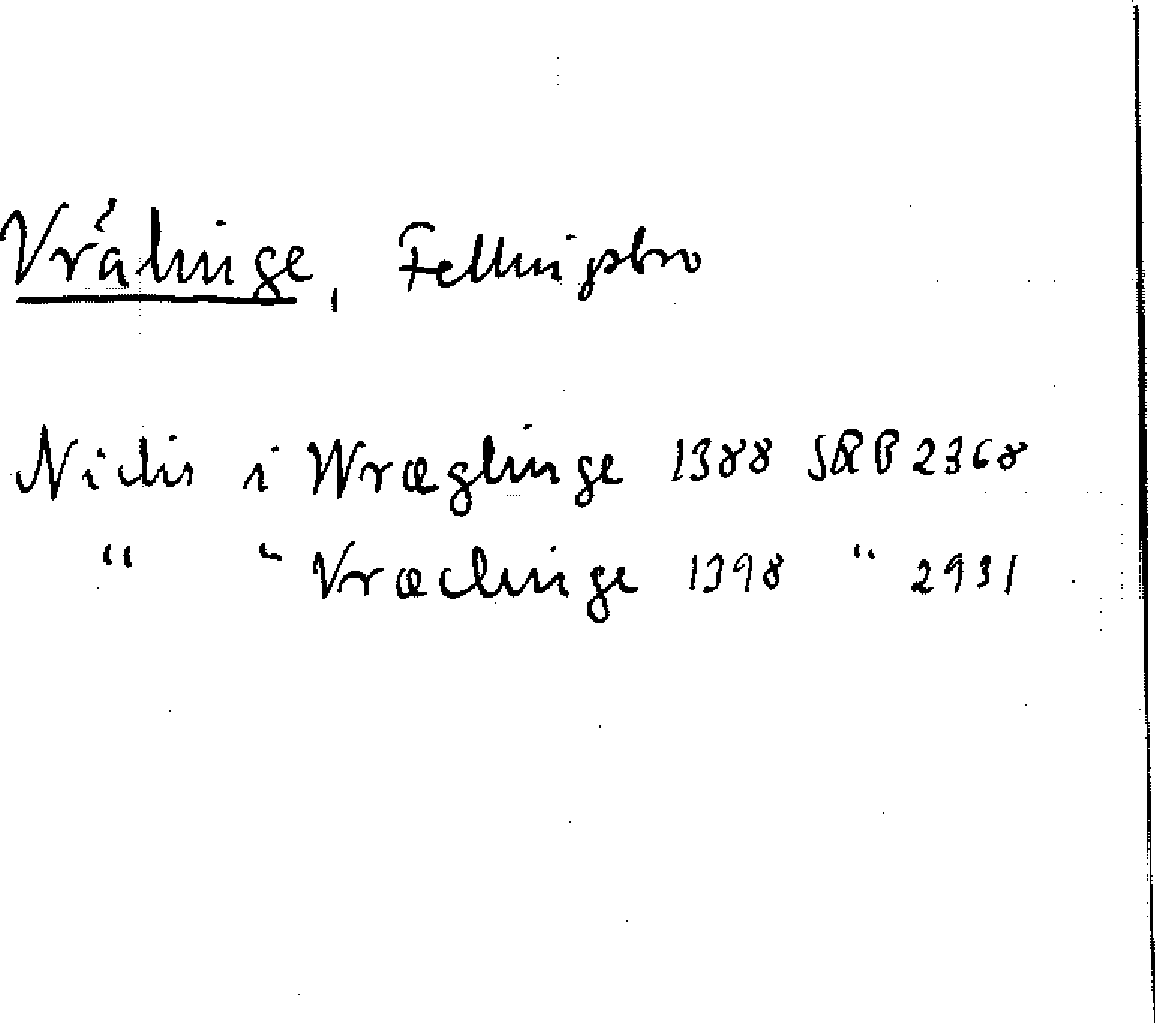 Vrålinge, Fellingsbro
Niclis i Wræglinge 1388 SRP 2368
" " Vræclinge 1398 " 2931